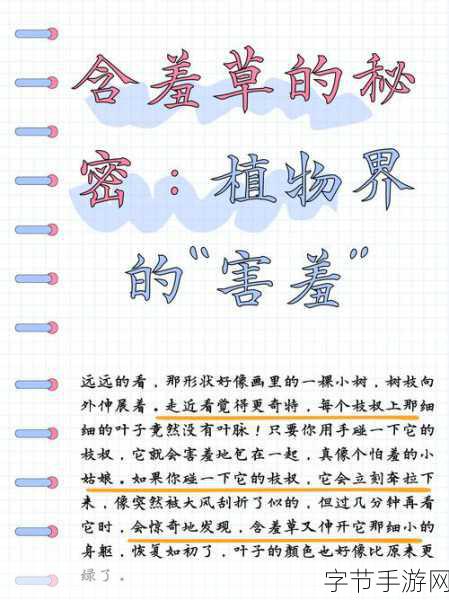 含羞草的秘
密：植物界
的“害羞”
远远的看，那形状好像画里的一棵小树，树枝向
外伸展着。走近看觉得更奇特，每个枝杈上那细
细的叶子竟然没有叶脉！只要你用手碰一下它的
枝杈，它就会害羞地包在一起，真像个怕羞的小
姑娘。如果你碰一下它的枝杈，它会立刻奔拉下
来，像突然被大风刮折了似的，但过几分钟再看
它时，会惊奇地发现，含羞草又伸开它那细小的
身躯，恢复如初了，叶子的颜色也好像比原来更
绿了。
字节手游网